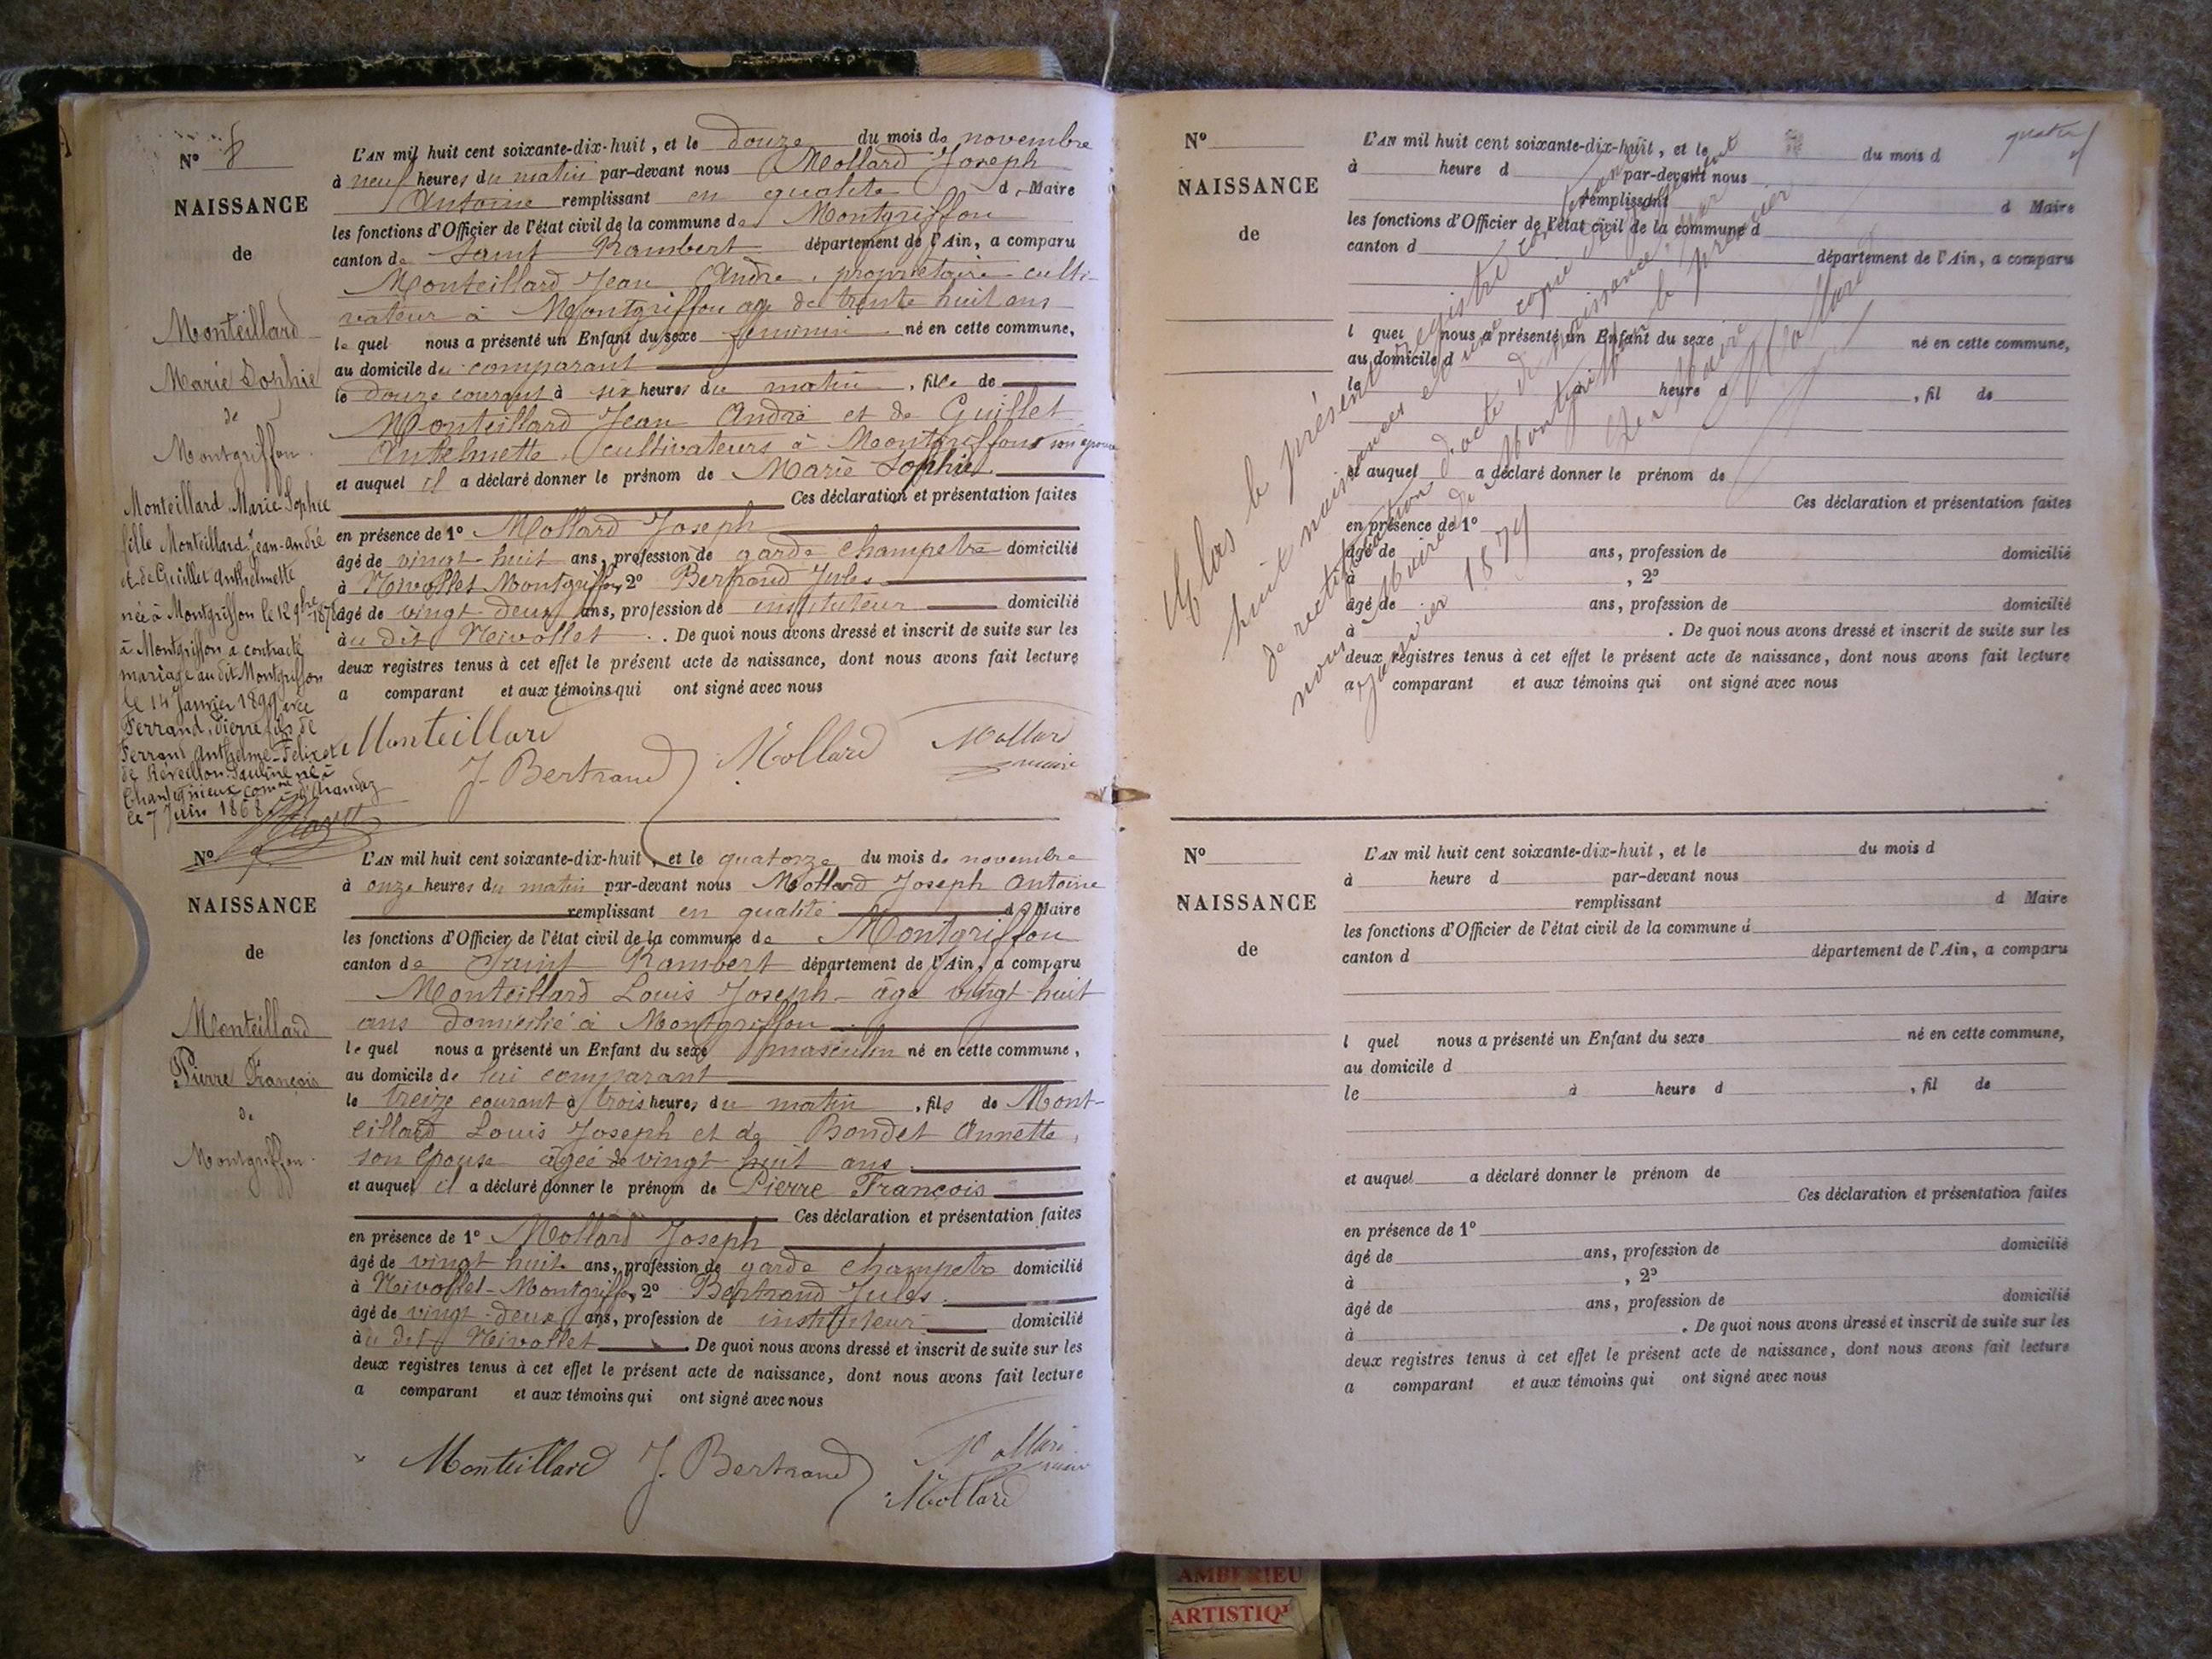 N° 8
NAISSANCE
de
Monteillard
Marie Sophie
de
Montgriffon
Monteillard Marie-Sophie
fille Monteillard Jean-André
et de Guillet Anthelmette
née à Montgriffon le 12 9bre 1878
à Montgriffon a contracté
mariage au dit Montgriffon
le 14 Janvier 1899 avec
Ferrand Pierre fils de
Ferrand Anthelme-Félix et
de Réveillon Pauline né à
Chantignieux comne d'Arandaz
le 7 Juin 1868
L'AN mil huit cent soixante-dix-huit, et le douze du mois de novembre
à neuf heures du matin par-devant nous Mollard Joseph
Antoine remplissant en qualité d Maire
les fonctions d'Officier de l'état civil de la commune de Montgriffon
canton de Saint Rambert département de l'Ain, a comparu
Monteillard Jean André, propriétaire culti-
vateur à Montgriffon age de trente huit ans
le quel nous a présenté un Enfant du sexe feminin né en cette commune,
au domicile du comparant
le douze courant à six heures du matin, fille de
Monteillard Jean André et de Guillet
Antelmette, cultivateurs à Montgriffon son épouse
et auquel il a déclaré donner le prénom de Marie Sophie
Ces déclaration et présentation faites
en présence de 1° Mollard Joseph
âgé de vingt-huit ans, profession de garde champetre domicilié
à Nivollet Montgriffon, 2° Bertrand Jules
âgé de vingt deux ans, profession de instituteur domicilié
au dit Nivollet. De quoi nous avons dressé et inscrit de suite sur les
deux registres tenus à cet effet le présent acte de naissance, dont nous avons fait lecture
a comparant et aux témoins qui ont signé avec nous
Monteillard
J. Bertrand Mollard Mollard
maire
N° 9
NAISSANCE
de
Monteillard
Pierre François
de
Montgriffon
L'AN mil huit cent soixante-dix-huit, et le quatorze du mois de novembre
à onze heures du matin par-devant nous Mollard Joseph Antoine
remplissant en qualité d Maire
les fonctions d'Officier de l'état civil de la commune de Montgriffon
canton de Saint Rambert département de l'Ain, a comparu
Monteillard Louis Joseph - âgé vingt-huit
ans domicilié à Montgriffon
le quel nous a présenté un Enfant du sexe masculin né en cette commune,
au domicile de lui comparant
le treize courant à trois heures du matin, fils de Mont-
eillard Louis Joseph et de Bondet Annette,
son épouse âgée de vingt huit ans
et auquel il a déclaré donner le prénom de Pierre François
Ces déclaration et présentation faites
en présence de 1° Mollard Joseph
âgé de vingt huit ans, profession de garde champetre domicilié
à Nivollet-Montgriffon, 2° Bertrand Jules
âgé de vingt-deux ans, profession de instituteur domicilié
au dit Nivollet. De quoi nous avons dressé et inscrit de suite sur les
deux registres tenus à cet effet le présent acte de naissance, dont nous avons fait lecture
a comparant et aux témoins qui ont signé avec nous
Monteillard J. Bertrand Mollard
maire
Mollard
N°
NAISSANCE
de
L'AN mil huit cent soixante-dix-huit, et le du mois d
à heure d par-devant nous
remplissant d Maire
les fonctions d'Officier de l'état civil de la commune d
canton d département de l'Ain, a comparu
l quel nous a présenté un Enfant du sexe né en cette commune,
au domicile d
le à heure d , fil de
et auquel a déclaré donner le prénom de
Ces déclaration et présentation faites
en présence de 1°
âgé de ans, profession de domicilié
à , 2°
âgé de ans, profession de domicilié
à . De quoi nous avons dressé et inscrit de suite sur les
deux registres tenus à cet effet le présent acte de naissance, dont nous avons fait lecture
a comparant et aux témoins qui ont signé avec nous
Clos le présent registre
huit naissances et une copie
de rectification d'acte de naissance, par
nous Maire de Montgriffon le premier
Janvier 1879
Le Maire
Mollard
N°
NAISSANCE
de
L'AN mil huit cent soixante-dix-huit, et le du mois d
à heure d par-devant nous
remplissant d Maire
les fonctions d'Officier de l'état civil de la commune d
canton d département de l'Ain, a comparu
l quel nous a présenté un Enfant du sexe né en cette commune,
au domicile d
le à heure d , fil de
et auquel a déclaré donner le prénom de
Ces déclaration et présentation faites
en présence de 1°
âgé de ans, profession de domicilié
à , 2°
âgé de ans, profession de domicilié
à . De quoi nous avons dressé et inscrit de suite sur les
deux registres tenus à cet effet le présent acte de naissance, dont nous avons fait lecture
a comparant et aux témoins qui ont signé avec nous
AMBERIEU
ARTISTIQ